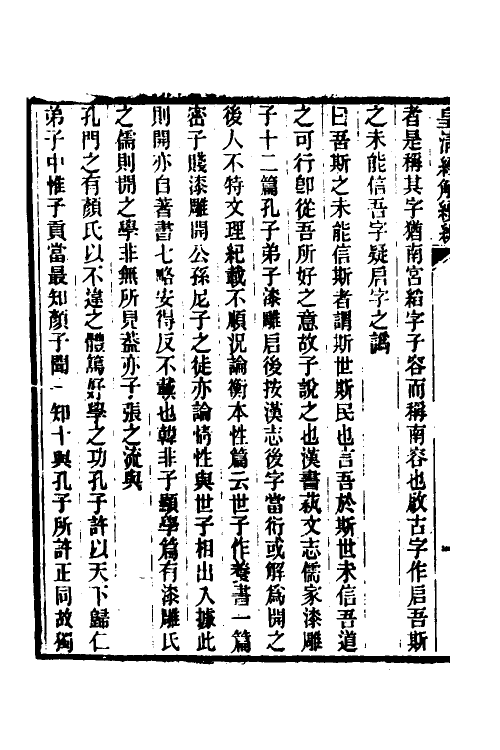 皇淸經解續編
者是稱其字猶南宮縚字子容而稱南容也啟古字作启吾斯
之未能信吾字疑启字之譌
曰吾斯之未能信斯者謂斯世斯民也言吾於斯世未信吾道
之可行卽從吾所好之意故子說之也漢書蓺文志儒家漆雕
子十二篇孔子弟子漆雕启後按漢志後字當衍或解爲開之
後人不特文理紀載不順況論衡本性篇云世子作養書一篇
密子賤漆雕開公孫尼子之徒亦論情性與世子相出入據此
則開亦自著書七略安得反不載也韓非子顯學篇有漆雕氏
之儒則開之學非無所見葢亦子張之流與
孔門之有顏氏以不違之體篤好學之功孔子許以天下歸仁
弟子中惟子貢當最知顏子聞一知十與孔子所許正同故獨